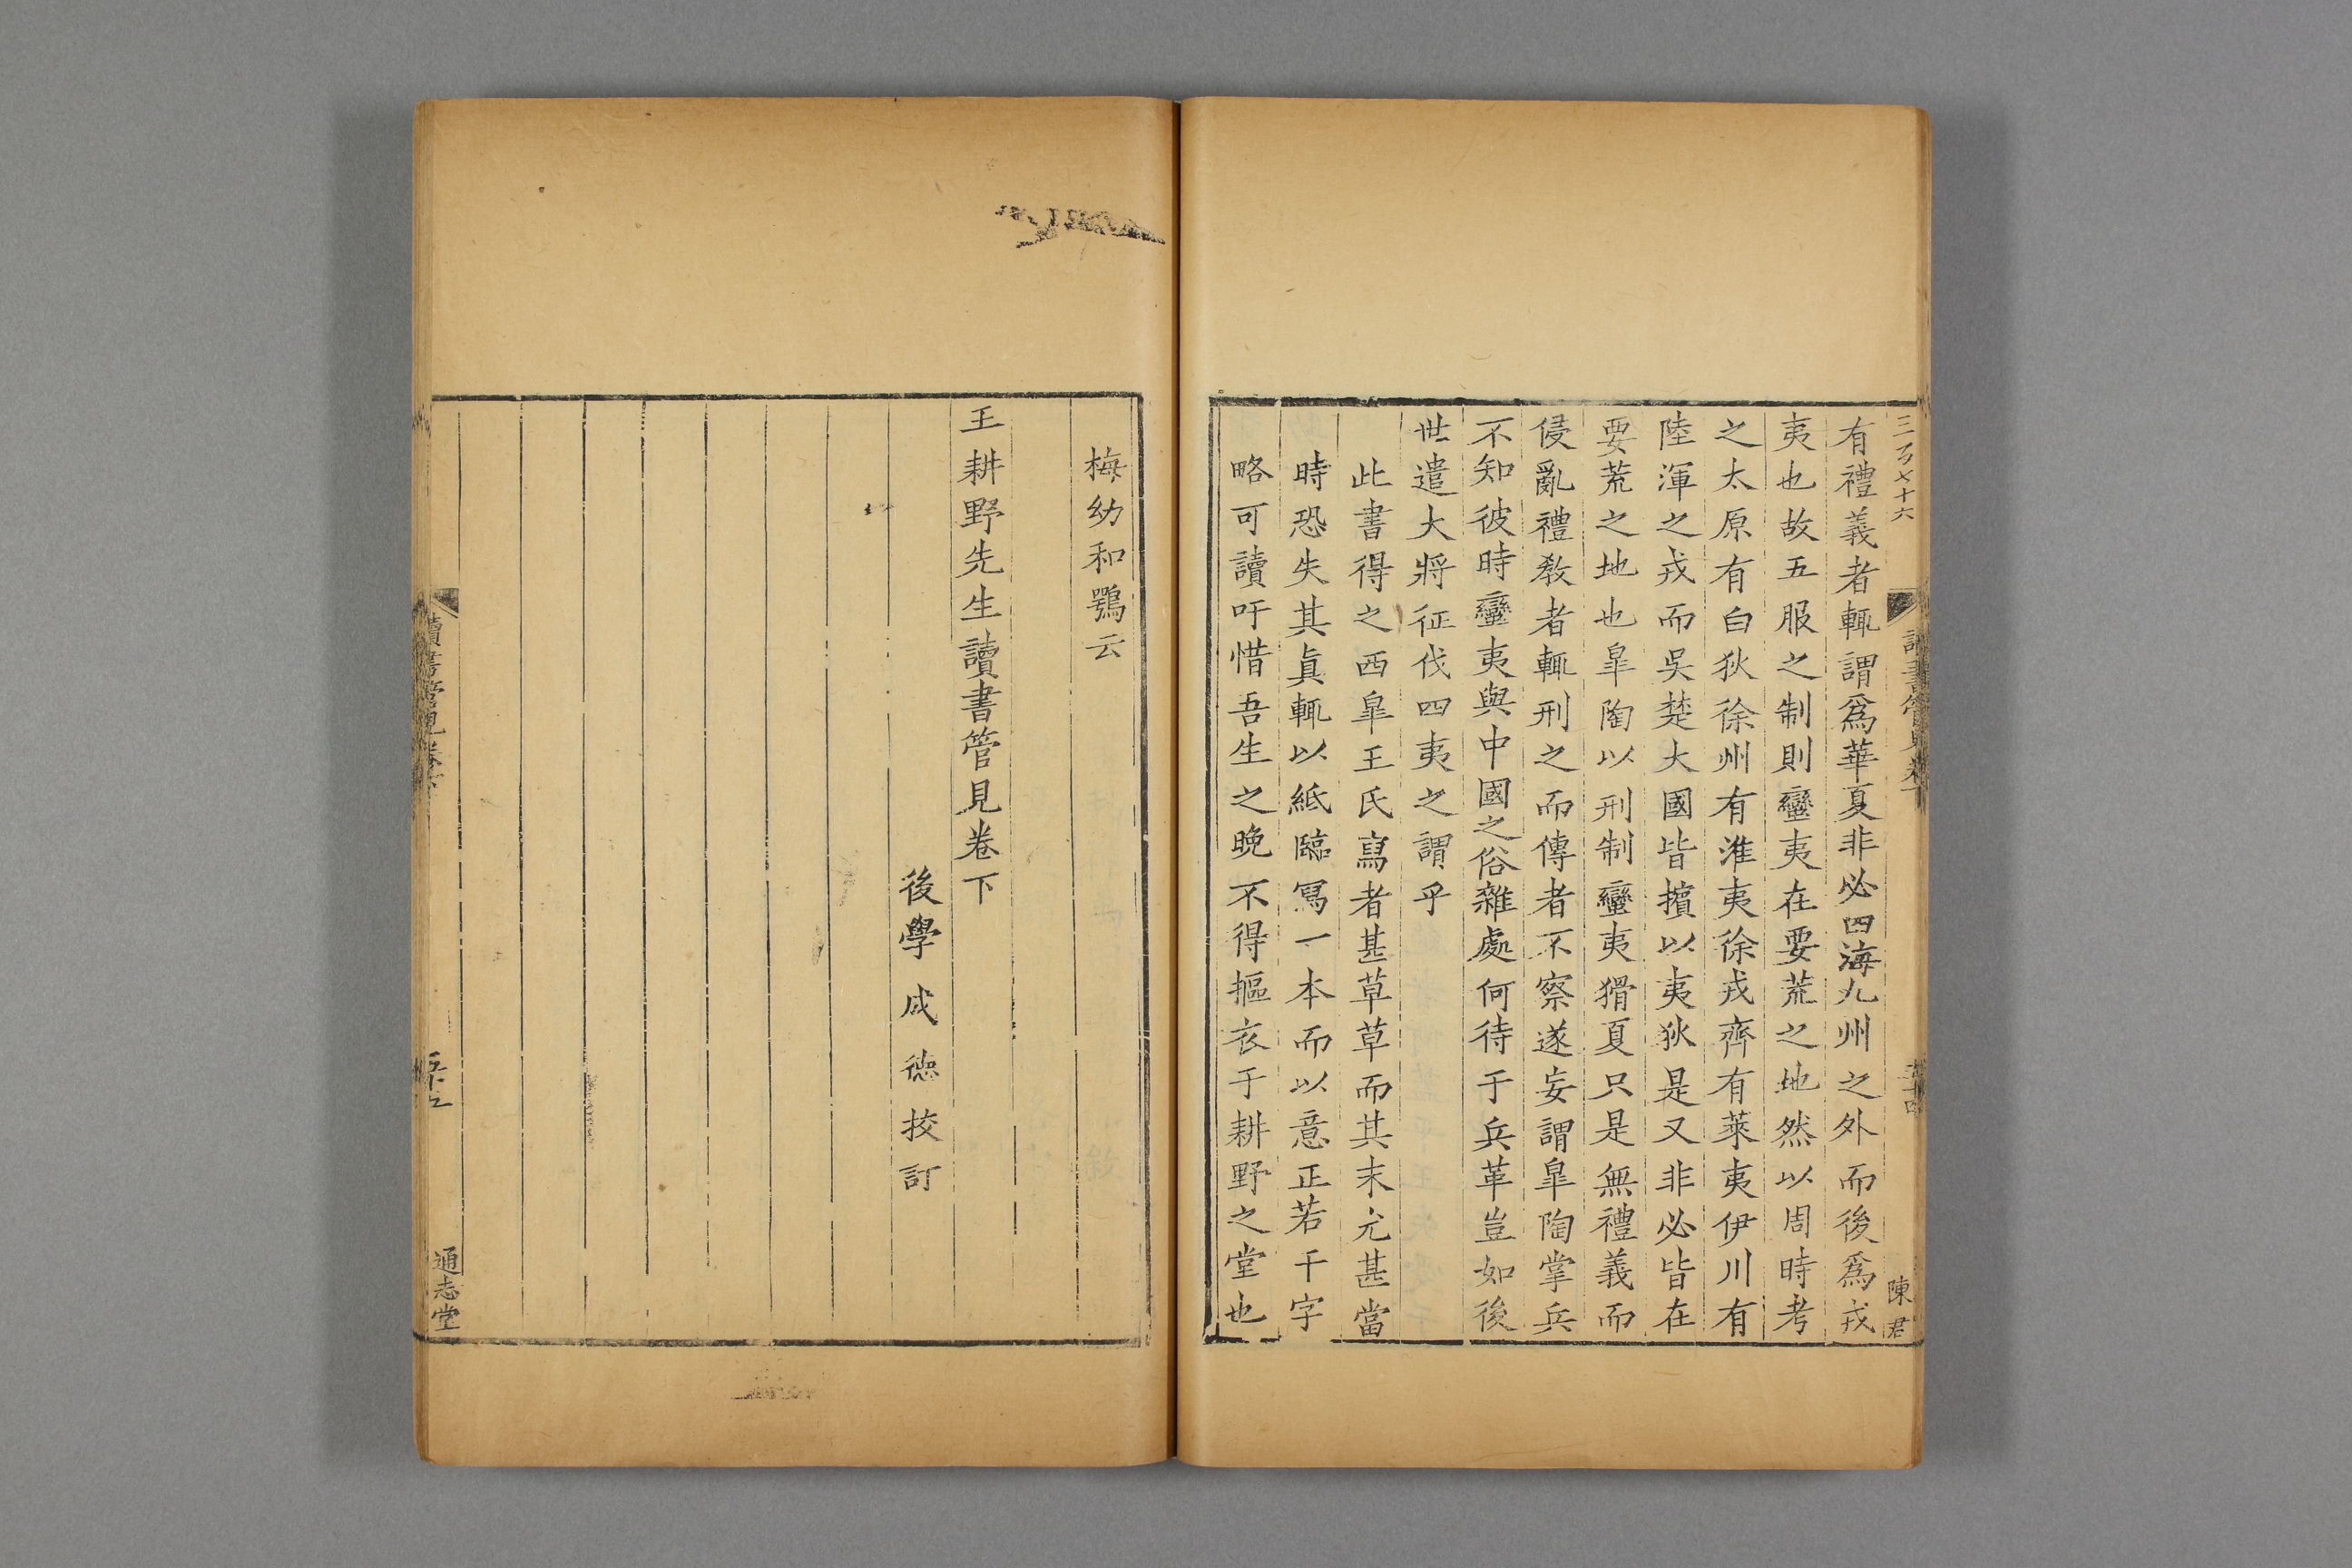 三百七十六
陳君
有禮義者輒謂爲華夏非必四海九州之外而後爲戎
夷也故五服之制則蠻夷在要荒之地然以周時考
之太原有白狄徐州有淮夷徐戎齊有萊夷伊川有
陸渾之戎而吳楚大國皆擯以夷狄是又非必皆在
要荒之地也臯陶以刑制蠻夷猾夏只是無禮義而
侵亂禮教者輒刑之而傳者不察遂妄謂臯陶掌兵
不知彼時蠻夷與中國之俗雜處何待于兵革豈如後
世遣大將征伐四夷之謂乎
此書得之西臯王氏寫者甚草草而其末尤甚當
時恐失其眞輒以紙臨寫一本而以意正若干字
略可讀吁惜吾生之晚不得摳衣于耕野之堂也
梅幼和鶚云
王耕野先生讀書管見卷下
後學成德挍訂
讀書管見卷下
通志堂